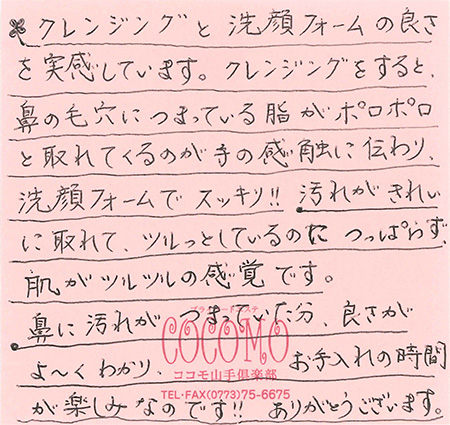 クレンジングと洗顔フォームの良さ
を実感しています。クレンジングをすると、
鼻の毛穴につまっている脂がポロポロ
と取れてくるのが手の感触に伝わり、
洗顔フォームでスッキリ!! 汚れがきれい
に取れて、ツルっとしているのに つっぱらず、
肌がツルツルの感覚です。
鼻に汚れが つまっていた分、良さが
よ〜くわかり、 お手入れの時間
が楽しみなのです!! ありがとうございます。
ブライダルエステ
COCOMO
ココモ山手倶楽部
TEL・FAX(0773)75-6675